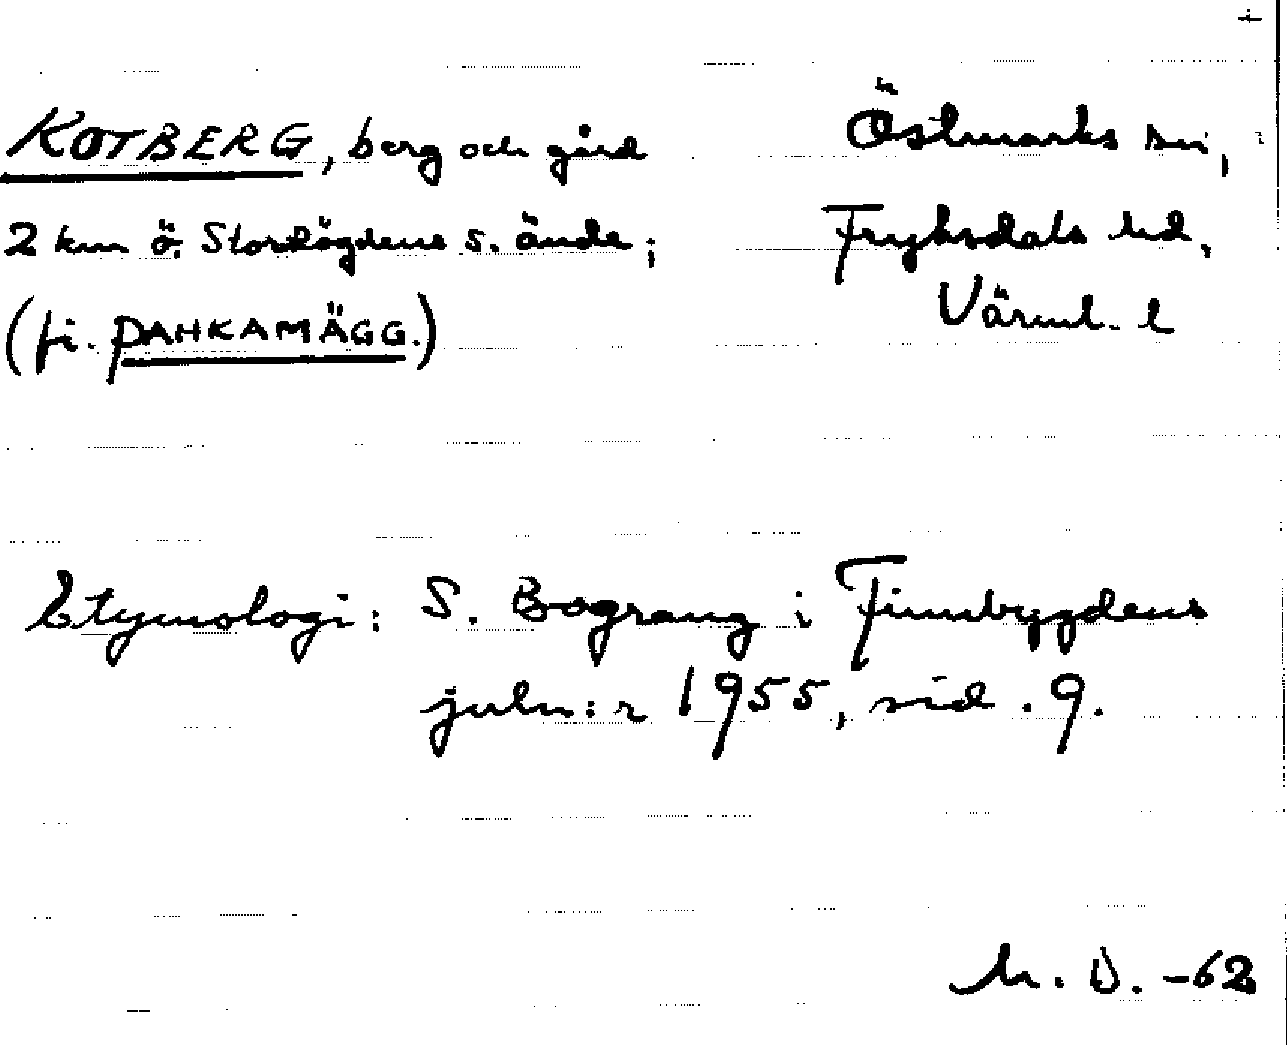 KOTBERG, berg och gård
2 km ö. Stordögdens s. ände;
(fi. PAHKAMÄGG.)
Östmarks sn,
Fryksdals hd,
Värml. l
Etymologi: S. Bograng i Finnbygdens
juln:r 1955, sid. 9.
D. -62